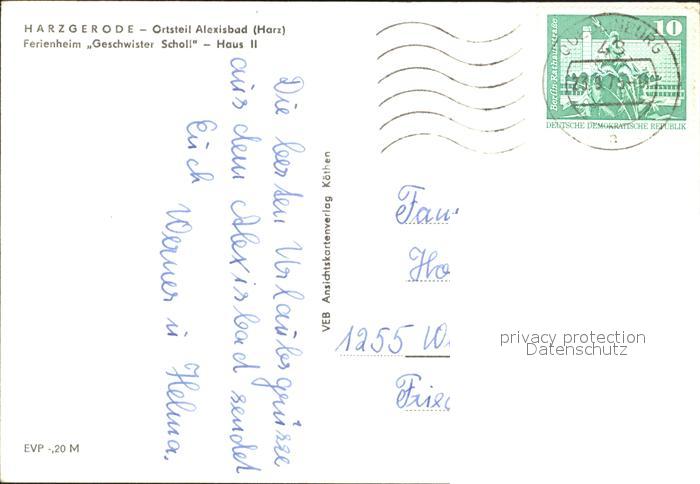 HARZGERODE – Ortsteil Alexisbad (Harz)
Ferienheim „Geschwister Scholl" – Haus II
Die besten Urlaubsgrüsse
aus dem Alexisbad sendet
Euch
Werner u Helma.
VEB Ansichtskartenverlag Köthen
EVP -,20 M
10
Berlin Rathausstraße
DEUTSCHE DEMOKRATISCHE REPUBLIK
43
a
Fam
Ho
1255 W
Frie
privacy protection
Datenschutz